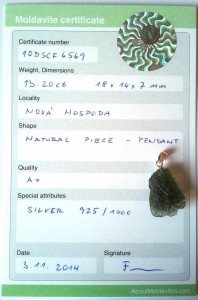 Moldavite certificate
Certificate number
10DSCF6569
Weight, Dimensions
13.20ct 18x14x7 mm
Locality
NOVÁ HOSPODA
Shape
NATURAL PIECE - PENDANT
Quality
A+
Special attributes
SILVER 925/1000
Date Signature
3.11.2014
AboutMoldavites.com